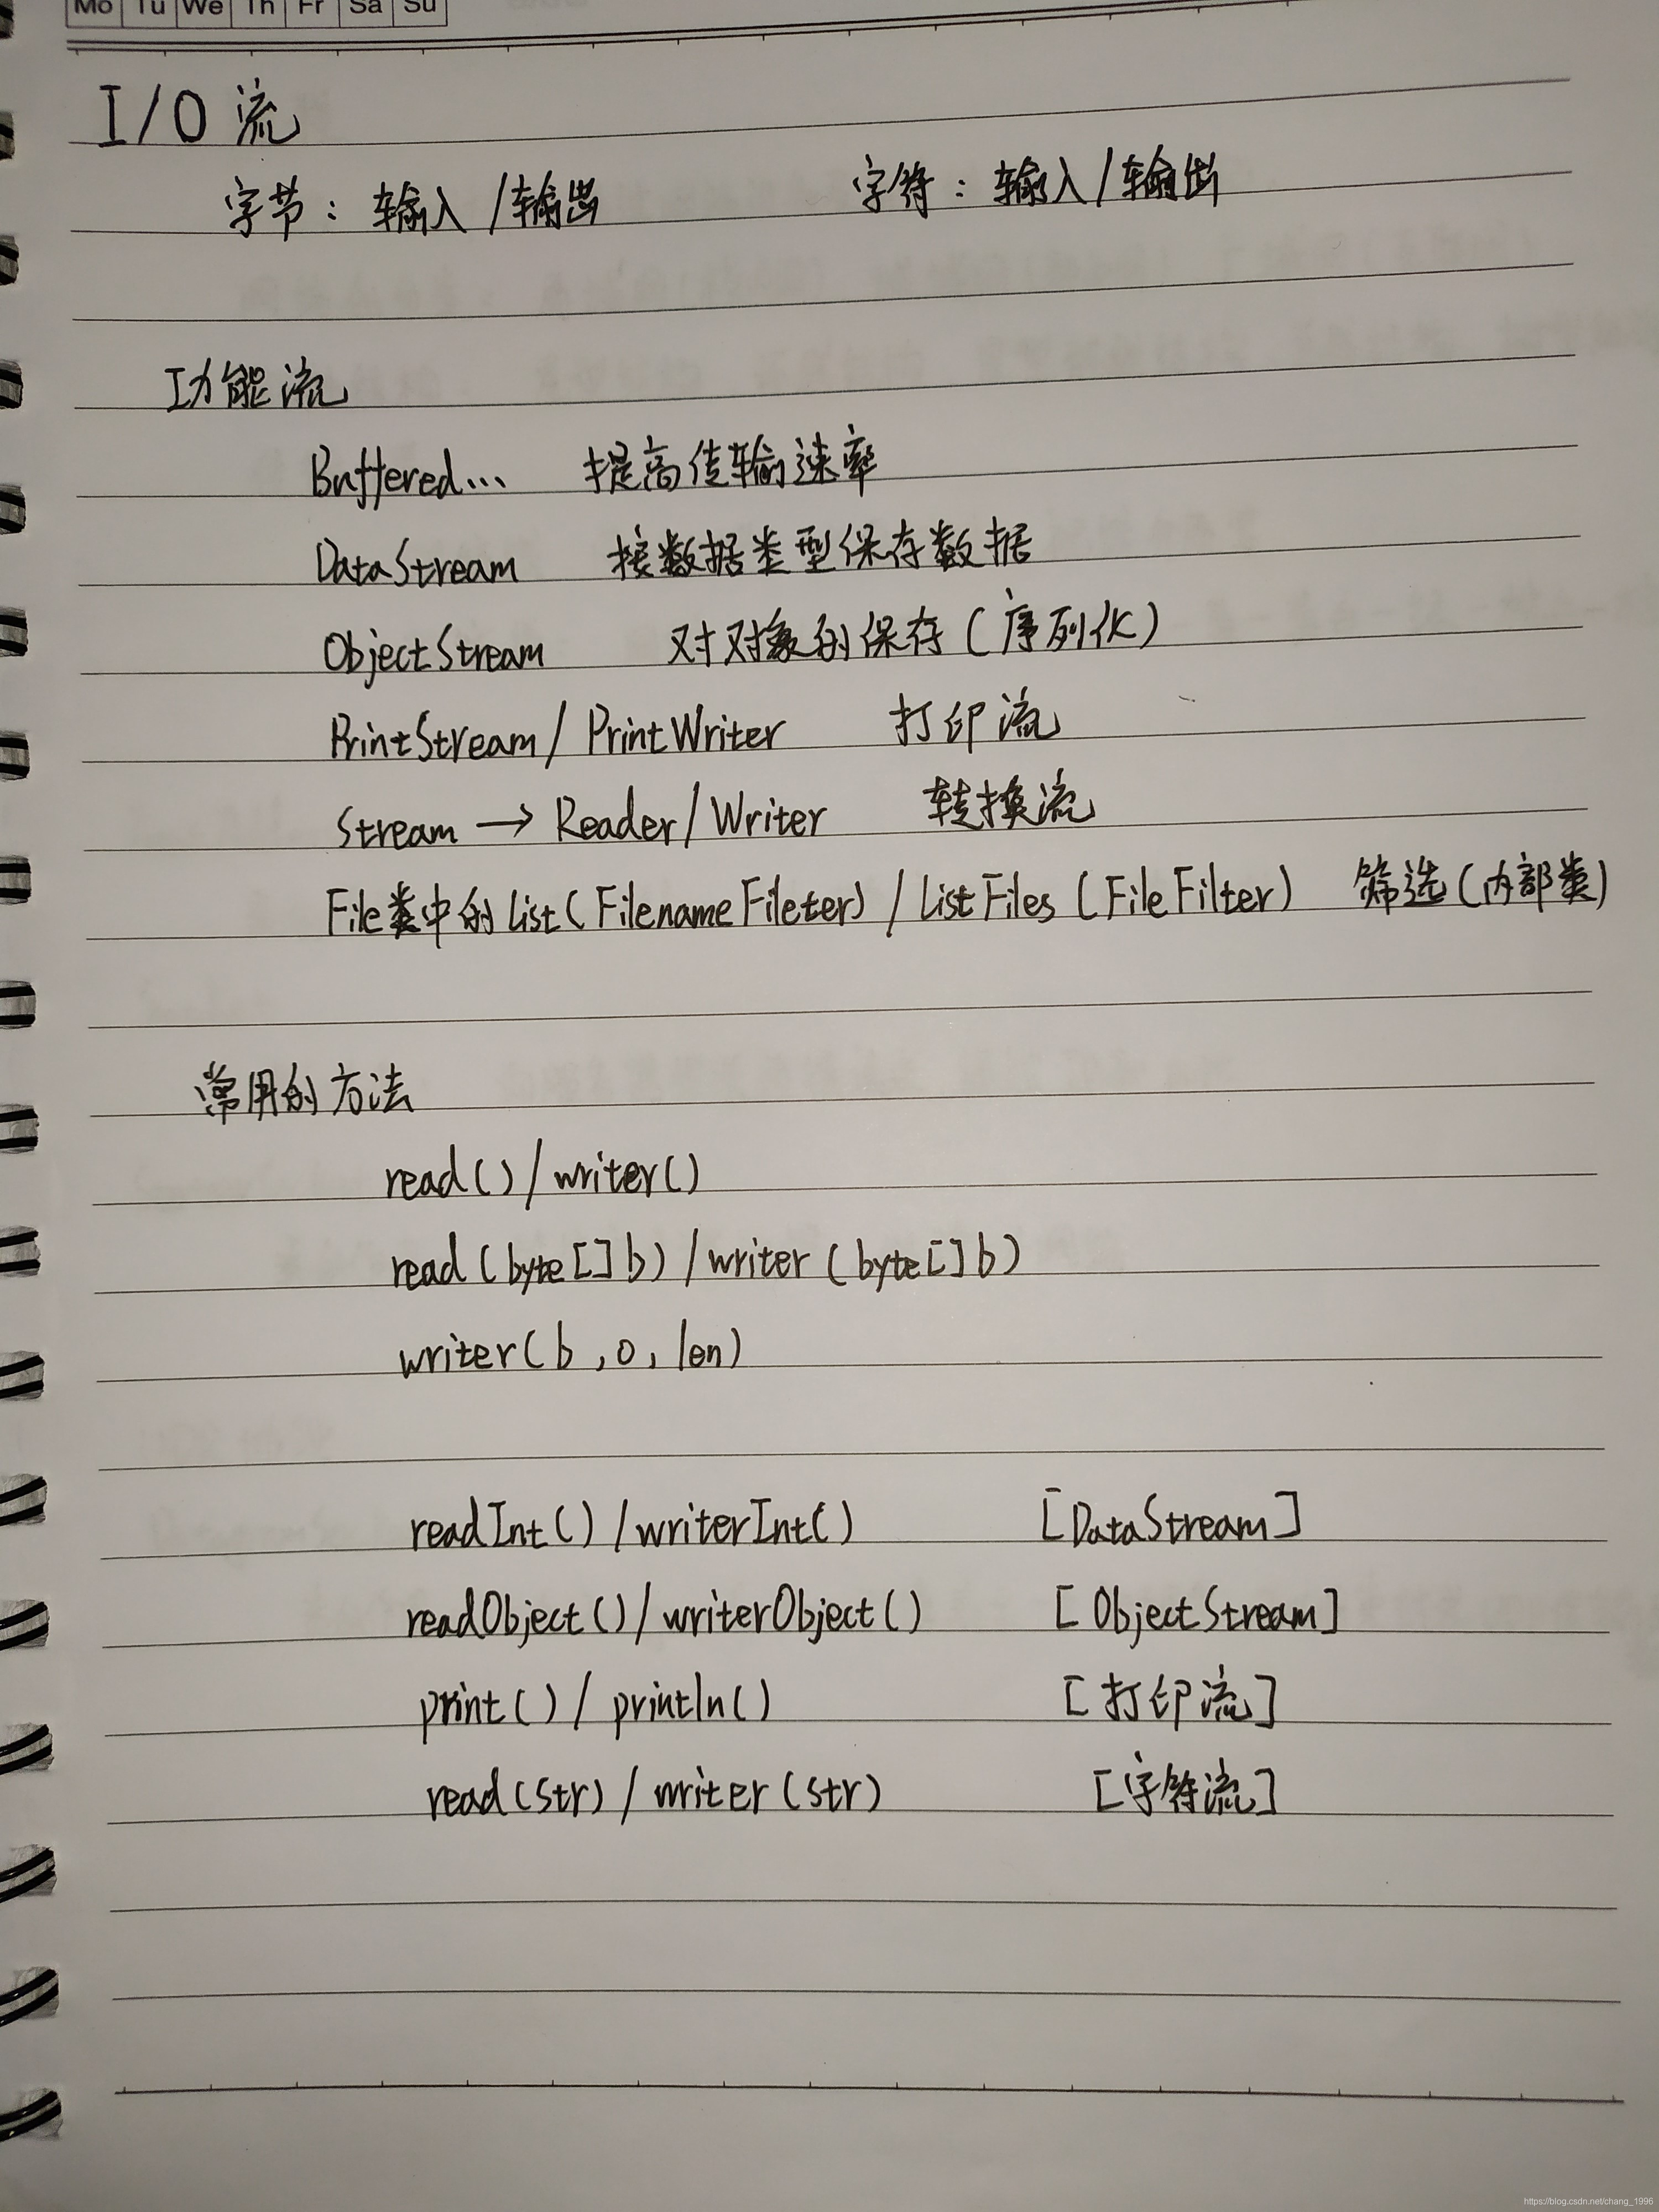 Mo Tu We Th Fr Sa Su
I/O 流
字节：输入/输出 字符：输入/输出
功能流
Buffered... 提高传输速率
DataStream 接数据类型保存数据
ObjectStream 对对象的保存(序列化)
PrintStream/PrintWriter 打印流
Stream → Reader/Writer 转换流
File类中的list(FilenameFileter)/listFiles(FileFilter) 筛选(内部类)
常用的方法
read()/writer()
read(byte[]b)/writer(byte[]b)
writer(b,0,len)
readInt()/writerInt() [DataStream]
readObject()/writerObject() [ObjectStream]
print()/println() [打印流]
read(str)/writer(str) [字符流]
https://blog.csdn.net/chang_1996